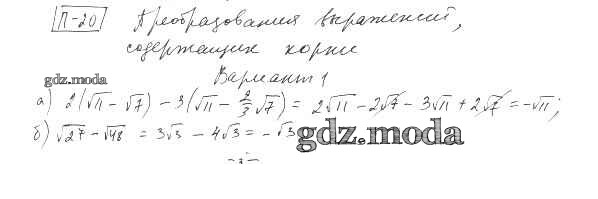 П-20 Преобразования выражений,
содержащих корни
gdz.moda
Вариант 1
а) 2(√11 - √7) - 3(√11 - 2/3 √7) = 2√11 - 2√7 - 3√11 + 2√7 = -√11;
б) √27 - √48 = 3√3 - 4√3 = -√3
gdz.moda